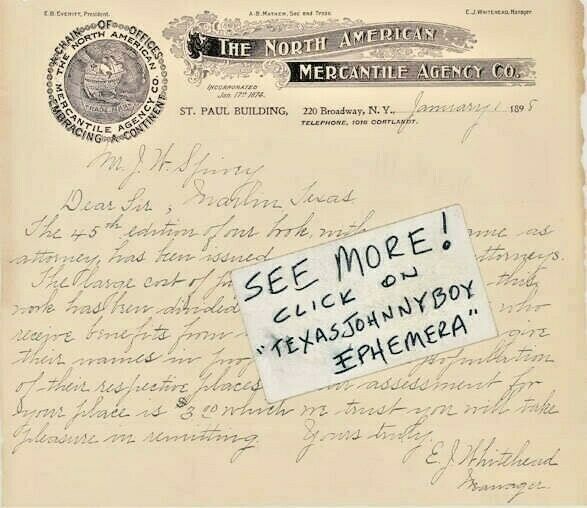 E.B. EVERITT, President.
A.B. MATHEW, Sec and Treas.
E.J. WHITEHEAD, Manager
A CHAIN OF OFFICES
EMBRACING A CONTINENT
THE NORTH AMERICAN
MERCANTILE AGENCY CO.
TRADE MARK
THE NORTH AMERICAN
MERCANTILE AGENCY CO.
INCORPORATED
Jan. 17th 1874.
ST. PAUL BUILDING, 220 Broadway, N.Y. January 1 1898
TELEPHONE, 1016 CORTLANDT.
M. J. W. Spivey
Dear Sir; Marlin Texas.
The 45th edition of our book, with as
attorney, has been issued attorneys.
The large cost of this
work has been divided who
receive benefits from give
their names in population
of their respective places assessment for
your place is $3.00 which we trust you will take
pleasure in remitting. Yours truly,
E. J. Whitehead
Manager.
SEE MORE!
CLICK ON
"TEXASJOHNNYBOY
EPHEMERA"